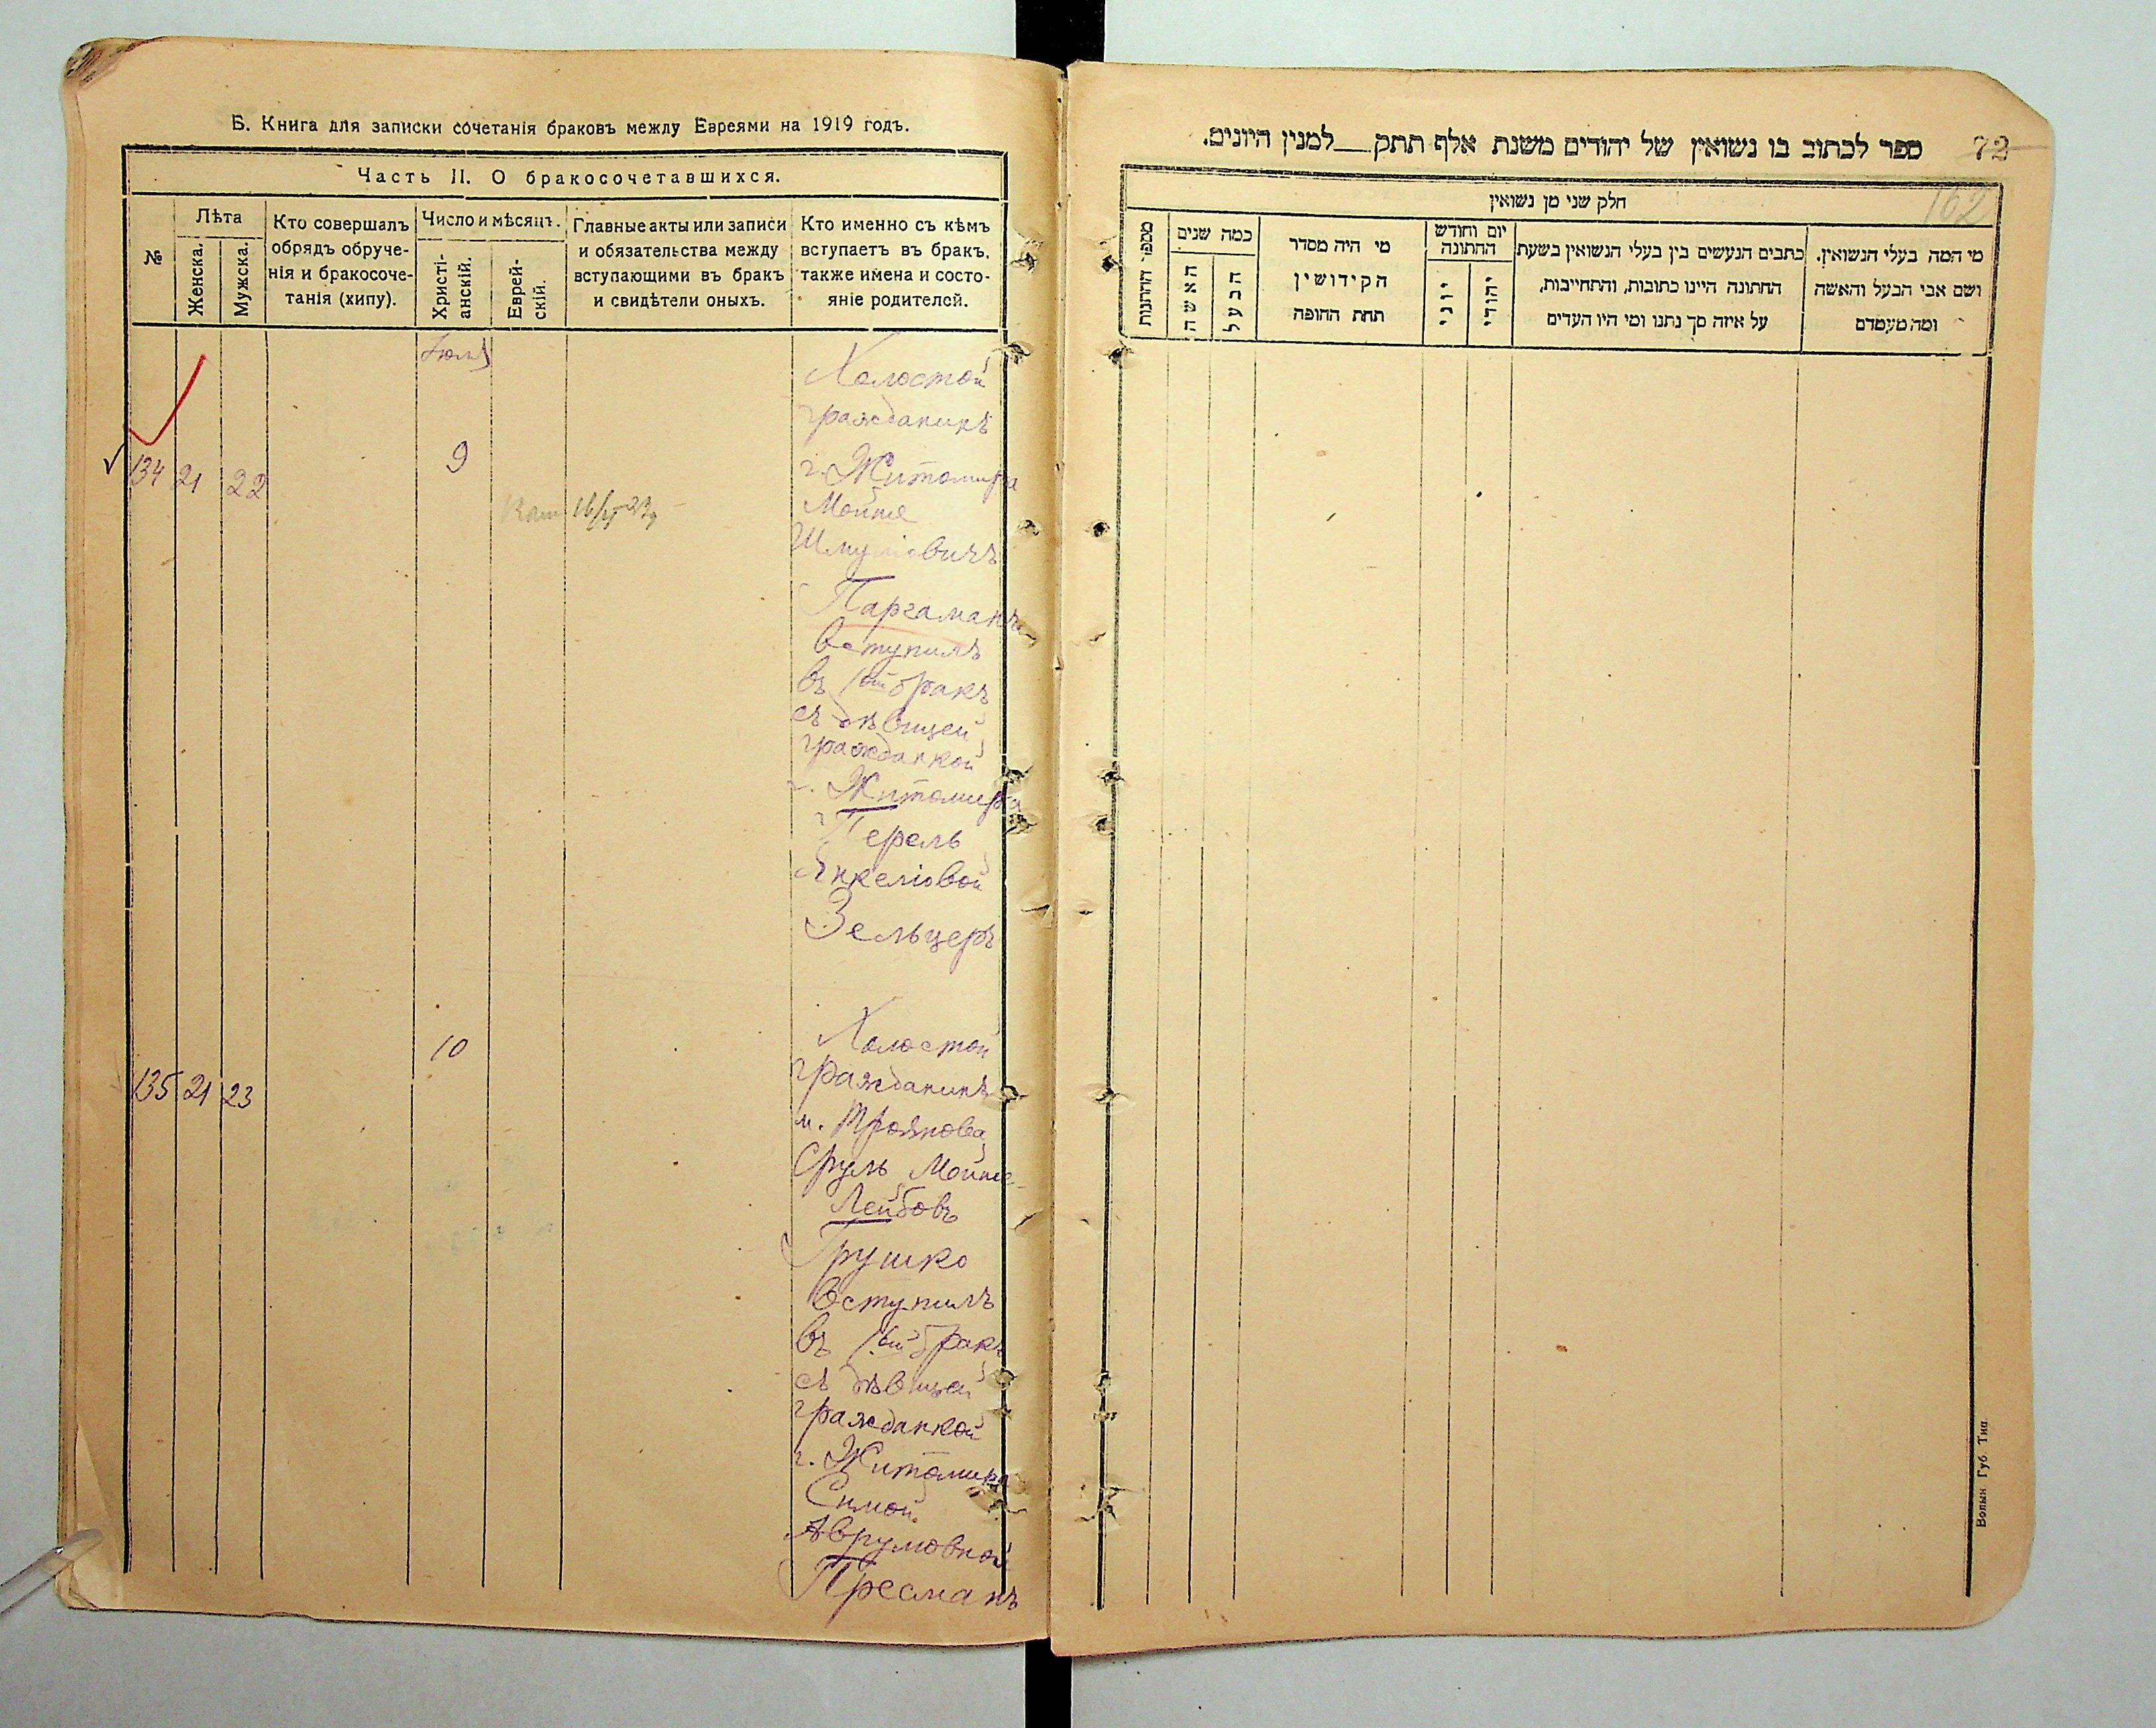 Б. Книга для записки сочетанія браковъ между Евреями на 1919 годъ.
Часть II. О бракосочетавшихся.
№
Лѣта
Женска.
Мужска.
Кто совершалъ
обрядъ обруче-
нія и бракосоче-
танія (хипу).
Число и мѣсяцъ.
Христі-
анскій.
Еврей-
скій.
Главные акты или записи
и обязательства между
вступающими въ бракъ
и свидѣтели оныхъ.
Кто именно съ кѣмъ
вступаетъ въ бракъ,
также имена и состо-
яніе родителей.
134 21 22
9
Холостой
гражданинъ
г. Житомира
Мойше
Шмуліовичъ
Паргаманъ
вступилъ
въ 1ый бракъ
съ дѣвицей
гражданкой
г. Житомира
Перель
Янкеліовой
Зельцеръ
135 21 23
10
Холостой
гражданинъ
м. Троянова
Сруль Мойше-
Лейбовъ
Грушко
вступилъ
въ 1ый бракъ
съ дѣвицей
гражданкой
г. Житомира
Симой
Аврумовной
Пресманъ
ספר לכתוב בו נשואין של יהודים משנת אלף תתק__למנין היונים.
72
162
חלק שני מן נשואין
מספר החתונות
כמה שנים
האשה
הבעל
מי היה מסדר
הקידושין
תחת החופה
יום וחודש
החתונה
יוני
יהודי
כתבים הנעשים בין בעלי הנשואין בשעת
החתונה היינו כתובות, והתחייבות,
על איזה סך נתנו ומי היו העדים
מי המה בעלי הנשואין.
ושם אבי הבעל והאשה
ומה מעמדם
Волын Губ Тип